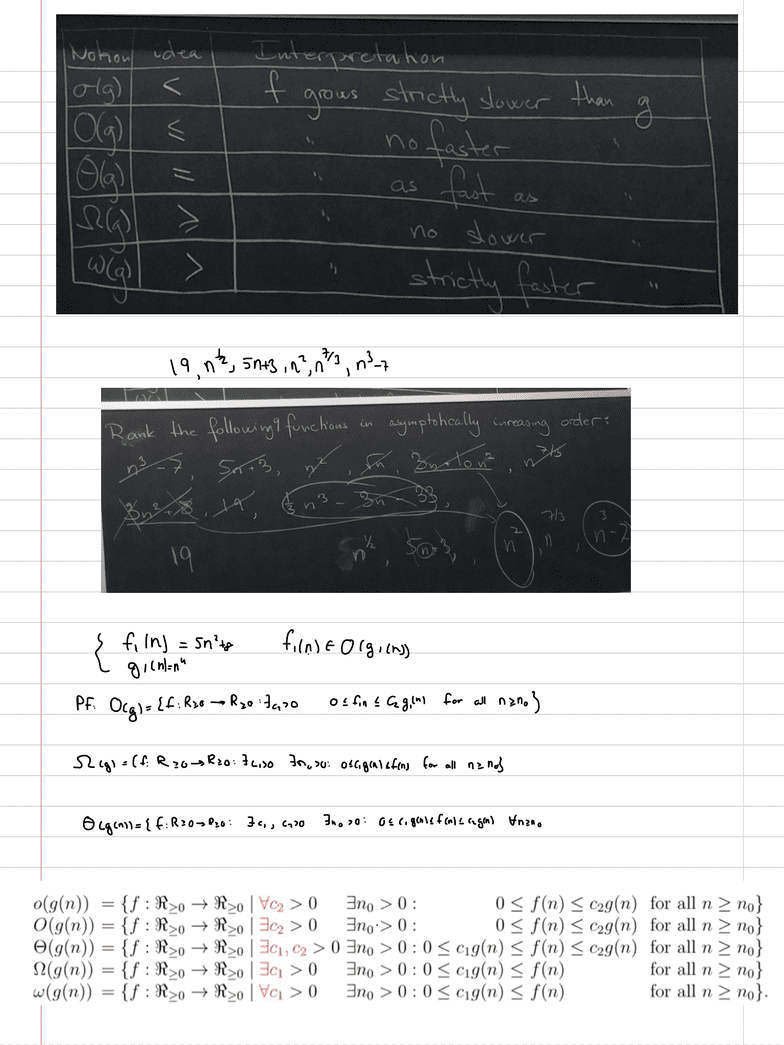 Notion idea Interpretation
o(g) < f grows strictly slower than g
O(g) ≤ " no faster "
Θ(g) = " as fast as "
Ω(g) ≥ " no slower "
ω(g) > " strictly faster "
19, n^1/2, 5n+3, n², n^7/3, n³-7
Rank the following 9 functions in asymptotically increasing order:
n³-7, 5n+3, n², √n, 3n+10n², n^7/3
3n²+8, 19, ⅓n³-3n-33,
19 n^1/2, 5n+3, n², n^7/3, n³-7
{ f₁(n) = 5n²+8 f₁(n) ∈ O(g₁(n))
g₁(n)=n⁴
Pf. O(g) = {f: R≥0 → R≥0 : ∃c₂>0 0 ≤ fn ≤ C₂g₁(n) for all n≥n₀}
Ω(g) = {f: R≥0→R≥0: ∃c₁>0 ∃n₀>0: 0≤c₁g(n)≤f(n) for all n≥n₀}
Θ(g(n))={f:R≥0→R≥0: ∃c₁, c₂>0 ∃n₀>0: 0≤c₁g(n)≤f(n)≤c₂g(n) ∀n≥n₀
o(g(n)) = {f : ℜ≥0 → ℜ≥0 | ∀c₂ > 0 ∃n₀ > 0 : 0 ≤ f(n) ≤ c₂g(n) for all n ≥ n₀}
O(g(n)) = {f : ℜ≥0 → ℜ≥0 | ∃c₂ > 0 ∃n₀ > 0 : 0 ≤ f(n) ≤ c₂g(n) for all n ≥ n₀}
Θ(g(n)) = {f : ℜ≥0 → ℜ≥0 | ∃c₁, c₂ > 0 ∃n₀ > 0 : 0 ≤ c₁g(n) ≤ f(n) ≤ c₂g(n) for all n ≥ n₀}
Ω(g(n)) = {f : ℜ≥0 → ℜ≥0 | ∃c₁ > 0 ∃n₀ > 0 : 0 ≤ c₁g(n) ≤ f(n) for all n ≥ n₀}
ω(g(n)) = {f : ℜ≥0 → ℜ≥0 | ∀c₁ > 0 ∃n₀ > 0 : 0 ≤ c₁g(n) ≤ f(n) for all n ≥ n₀}.